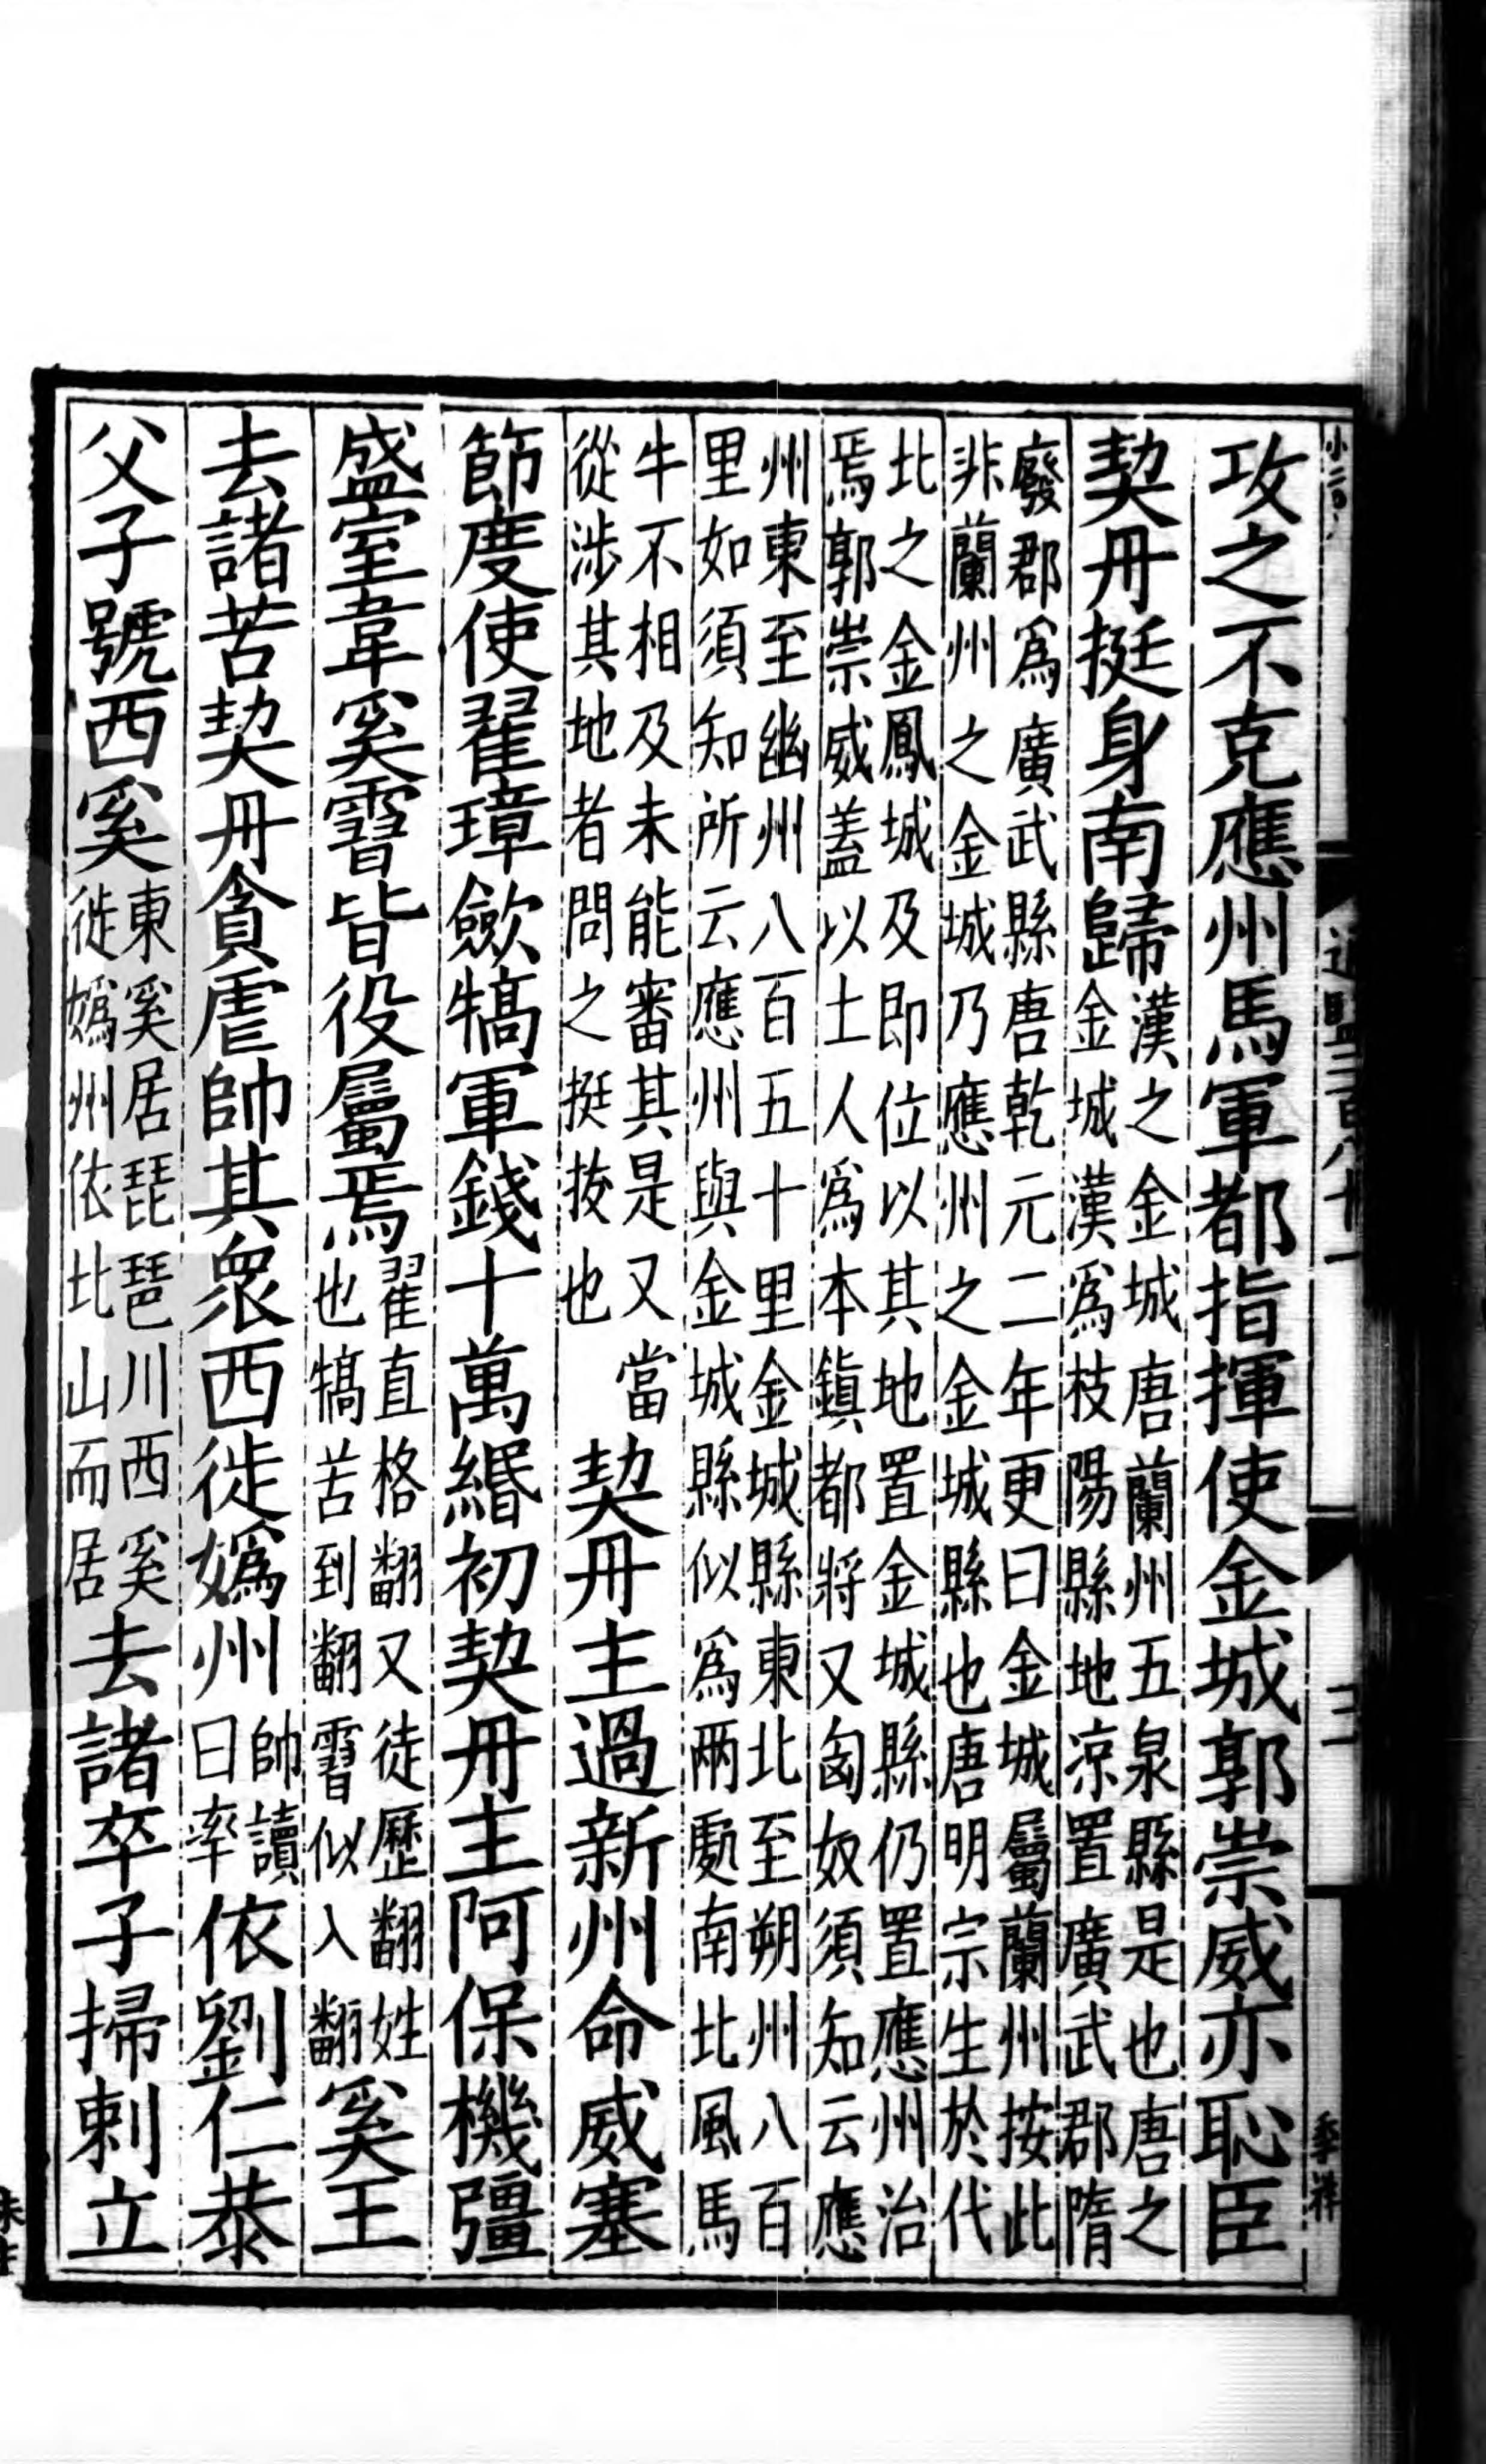 攻之不克應州馬軍都指揮使金城郭崇威亦恥臣
契丹挺身南歸漢之金城唐蘭州五泉縣是也唐之
金城漢爲枝陽縣地涼置廣武郡隋
廢郡爲廣武縣唐乾元二年更曰金城屬蘭州按此
非蘭州之金城乃應州之金城縣也唐明宗生於代
北之金鳳城及即位以其地置金城縣仍置應州治
焉郭崇威蓋以土人爲本鎮都將又匈奴須知云應
州東至幽州八百五十里金城縣東北至朔州八百
里如須知所云應州與金城縣似爲兩處南北風馬
牛不相及未能審其是又當
從涉其地者問之挺拔也
契丹主過新州命威塞
節度使翟璋斂犒軍錢十萬緡初契丹主阿保機彊
盛室韋奚霫皆役屬焉翟直格翻又徒歷翻姓
也犒苦到翻霫似入翻
奚王
去諸苦契丹貪虐帥其衆西徙嬀州帥讀
曰率
依劉仁恭
父子號西奚東奚居琵琶川西奚
徙嬀州依北山而居
去諸卒子掃剌立
通鑑二百八十一
二